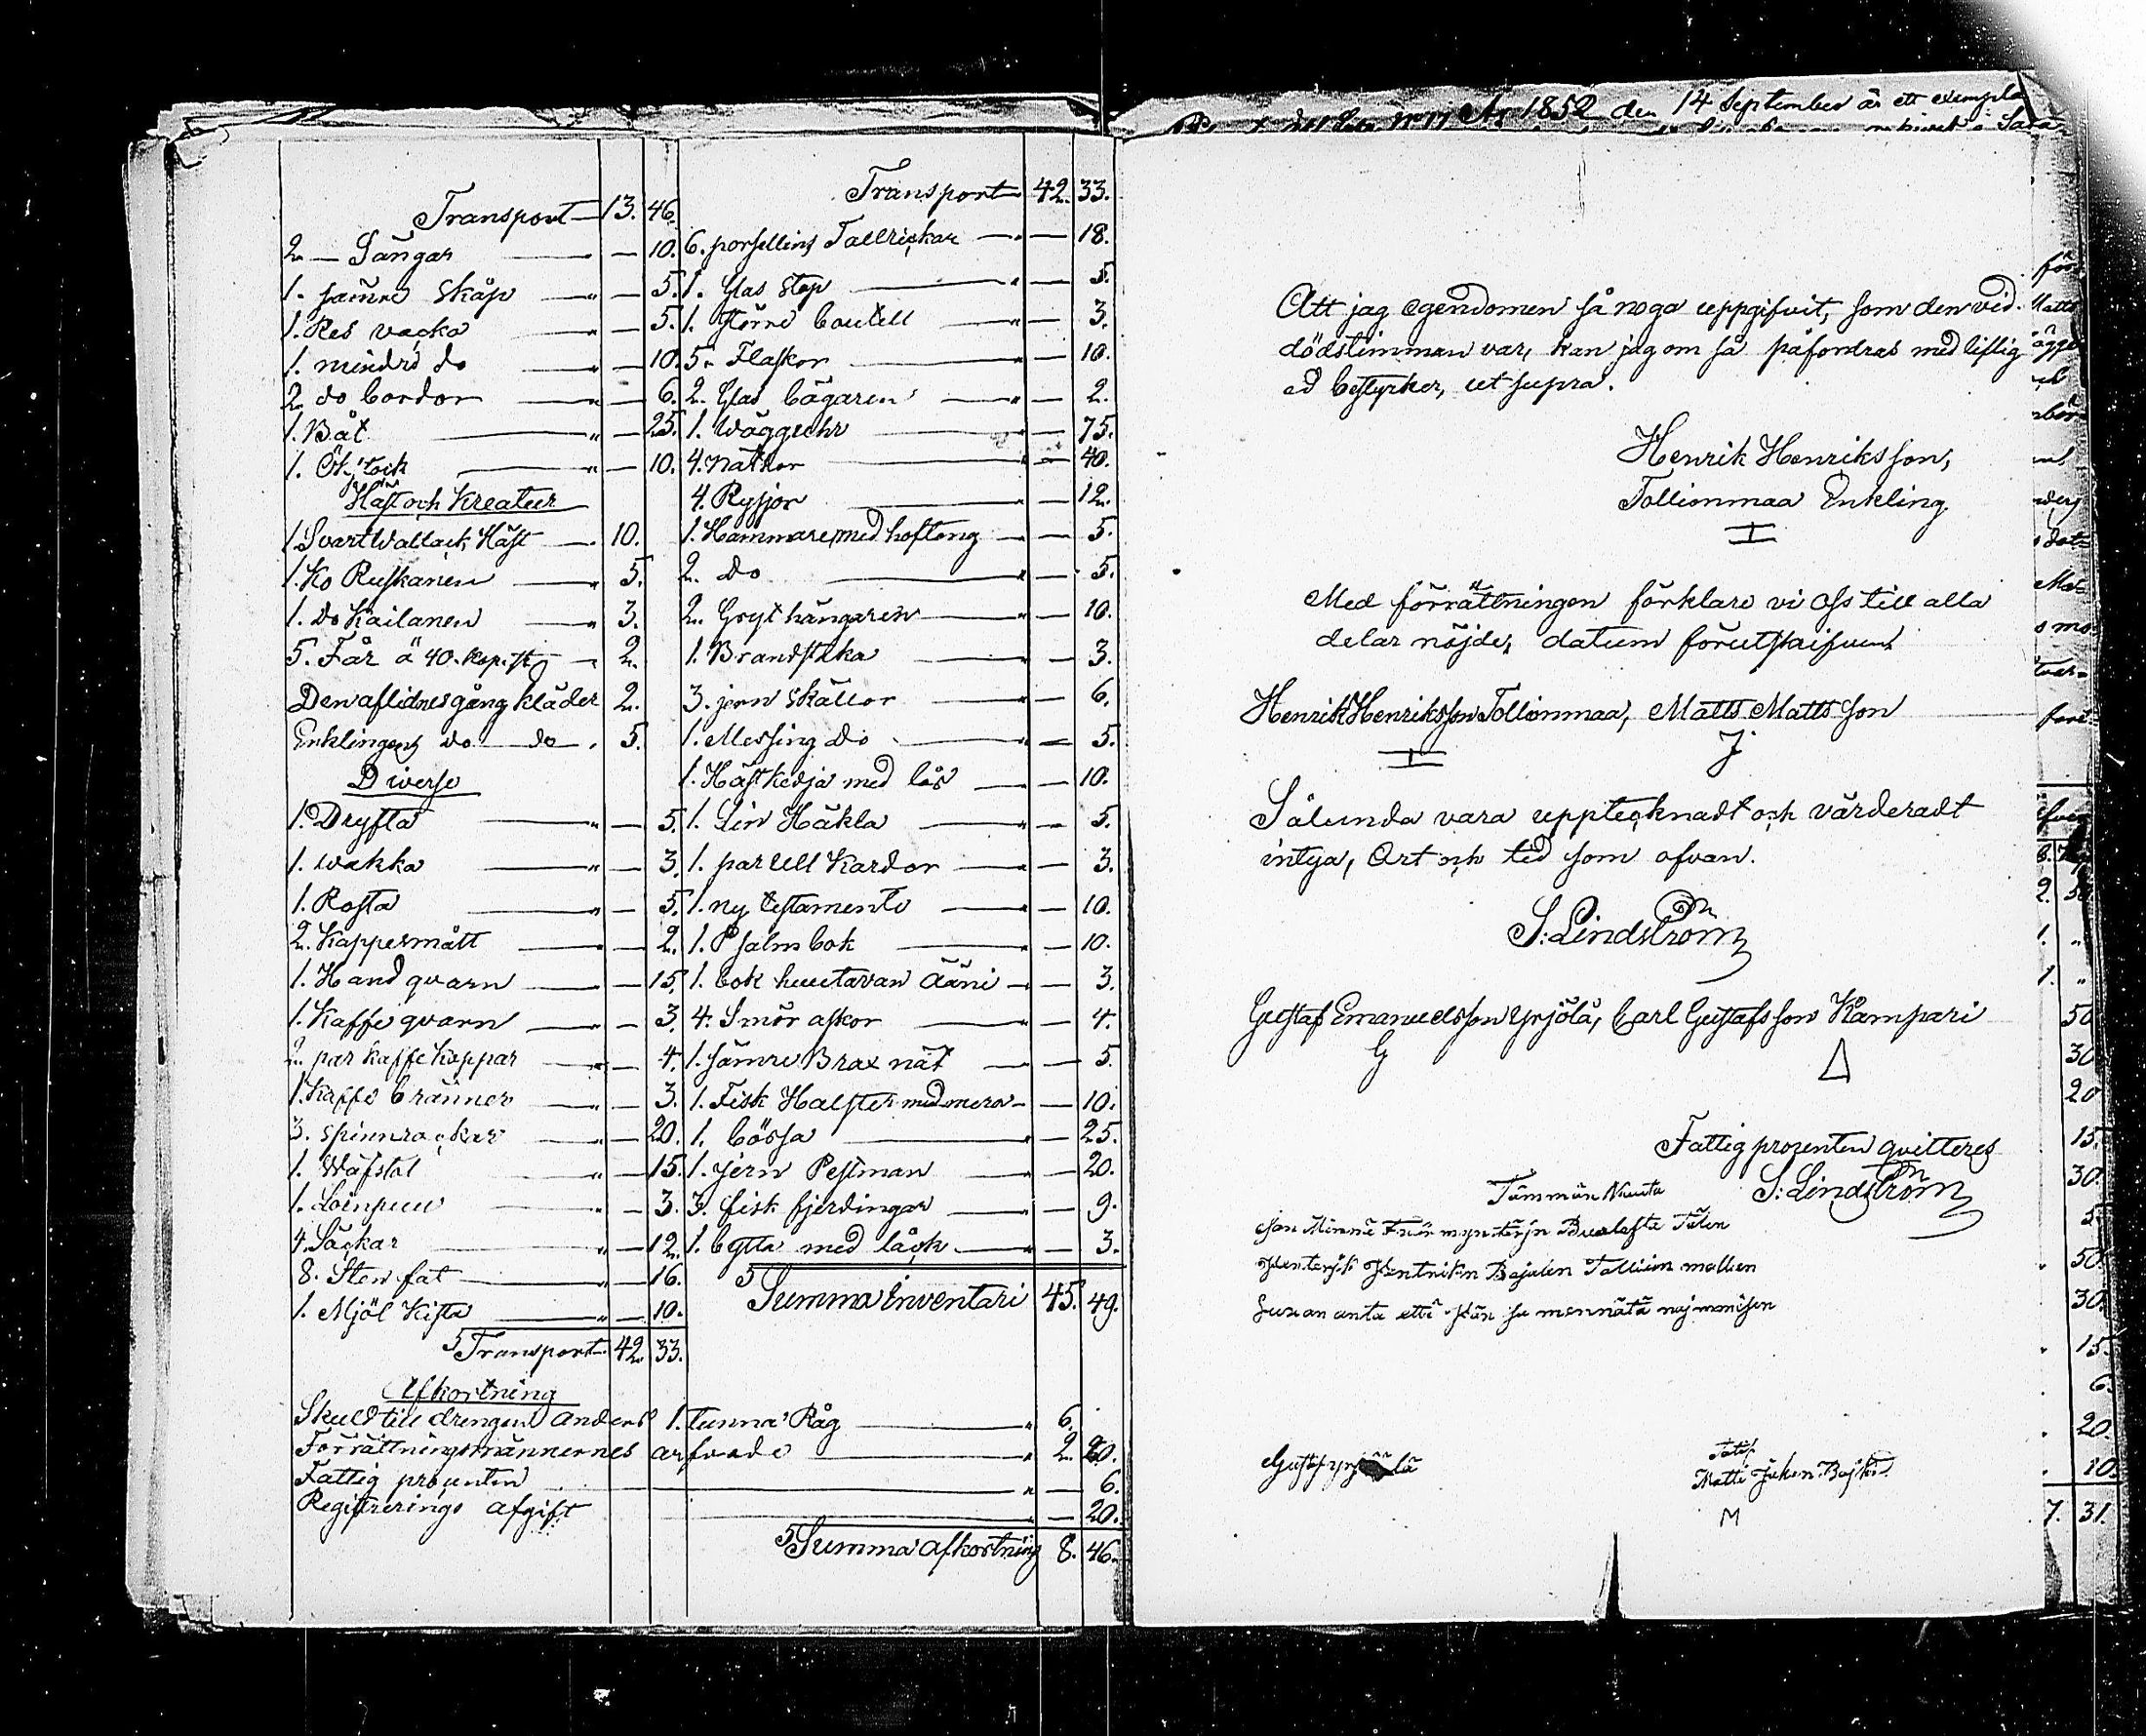 Transport 13. 46.
2 Sängar — 10.
1. sämre skåp — 5.
1. Res vacka — 5.
1. mindre do — 10.
2 do bordor — 6.
1. Båt — 25.
1. Ök stock — 10.
Häst och Kreatur
1 Svart Wallack Häst 10.
1. Ko Ruskanen 5.
1. do Kailanen 3.
5. Får á 40. kop. st. 2.
Den aflidnes gång kläder 2.
Enklingens do do 5.
Diverse
1. Dryfta — 5.
1. wakka — 3.
1. Rosta — 5.
2. Kappesmått — 2.
1. Hand qvarn — 15.
1. Kaffe qvarn — 3.
2. par kaffe koppar — 4.
1. Kaffe bränner — 3.
3. spinnrackar — 20.
1. Wäfstol — 15.
1. Loinpuu — 3.
4. Säckar — 12.
8. Sten fat — 16.
1. Mjöl Kista — 10.
Transport 42. 33.
Transport 42. 33.
6. porsellins Tallrickar — 18.
1. Glas stop — 5.
1. större boutell — 3.
5. Flaskor — 10.
2. Glas bägaren — 2.
1. Wäggeuhr — 75.
4. nätkor — 40.
4. Rysjor — 12.
1. Hammare, med hoftong — 5.
2. do — 5.
2. Gryt hängaren — 10.
1. Brandstaka — 3.
3. jern skällor — 6.
1. Messing do — 5.
1. Häst kedja med lås — 10.
1. Lin Häkla — 5.
1. par Ull Kardor — 3.
1. ny testamente — 10.
1. Psalm bok — 10.
1. bok huutavan ääni — 3.
4. Smör askor — 4.
1. sämre Brax nät — 5.
1. Fisk Halster med mera — 10.
1. bössa — 25.
1. jern Pestman — 20.
3. fisk fjerdingar — 9.
1. bytta med låck — 3.
Summa Inventari 45. 49.
Afkortning
Skuld till drengen Anders 1. tunna Råg 6.
Förrättningsmännernes arfvode 2. 20.
Fattig prosenten — 6.
Registrerings afgift — 20.
Summa afkortning 8. 46.
År 1852 den 14 September är ett exempla
Att jag egendomen så noga uppgifvit, som den vid
dödstimman var, kan jag om så påfordras med liflig
ed bestyrker, ut supra.
Henrik Henriksson,
Tollionmaa Enkling.
Med förrättningen förklare vi oss till alla
delar nöjde, datum förutskrifvit
Henrik Henriksson Tollionmaa, Matts Mattsson
J
Sålunda vara upptecknadt och värderadt
intyga, Ort och tid som ofvan.
S: Lindström
Gustaf Emanuelsson Yrjölä, Carl Gustafsson Kampari
G
Fattig prozenten qvitteres
S: Lindström
Tämmän Nuuta
M
50
30
20
15.
30.
5
50
30.
15.
6.
20.
10.
7. 31.